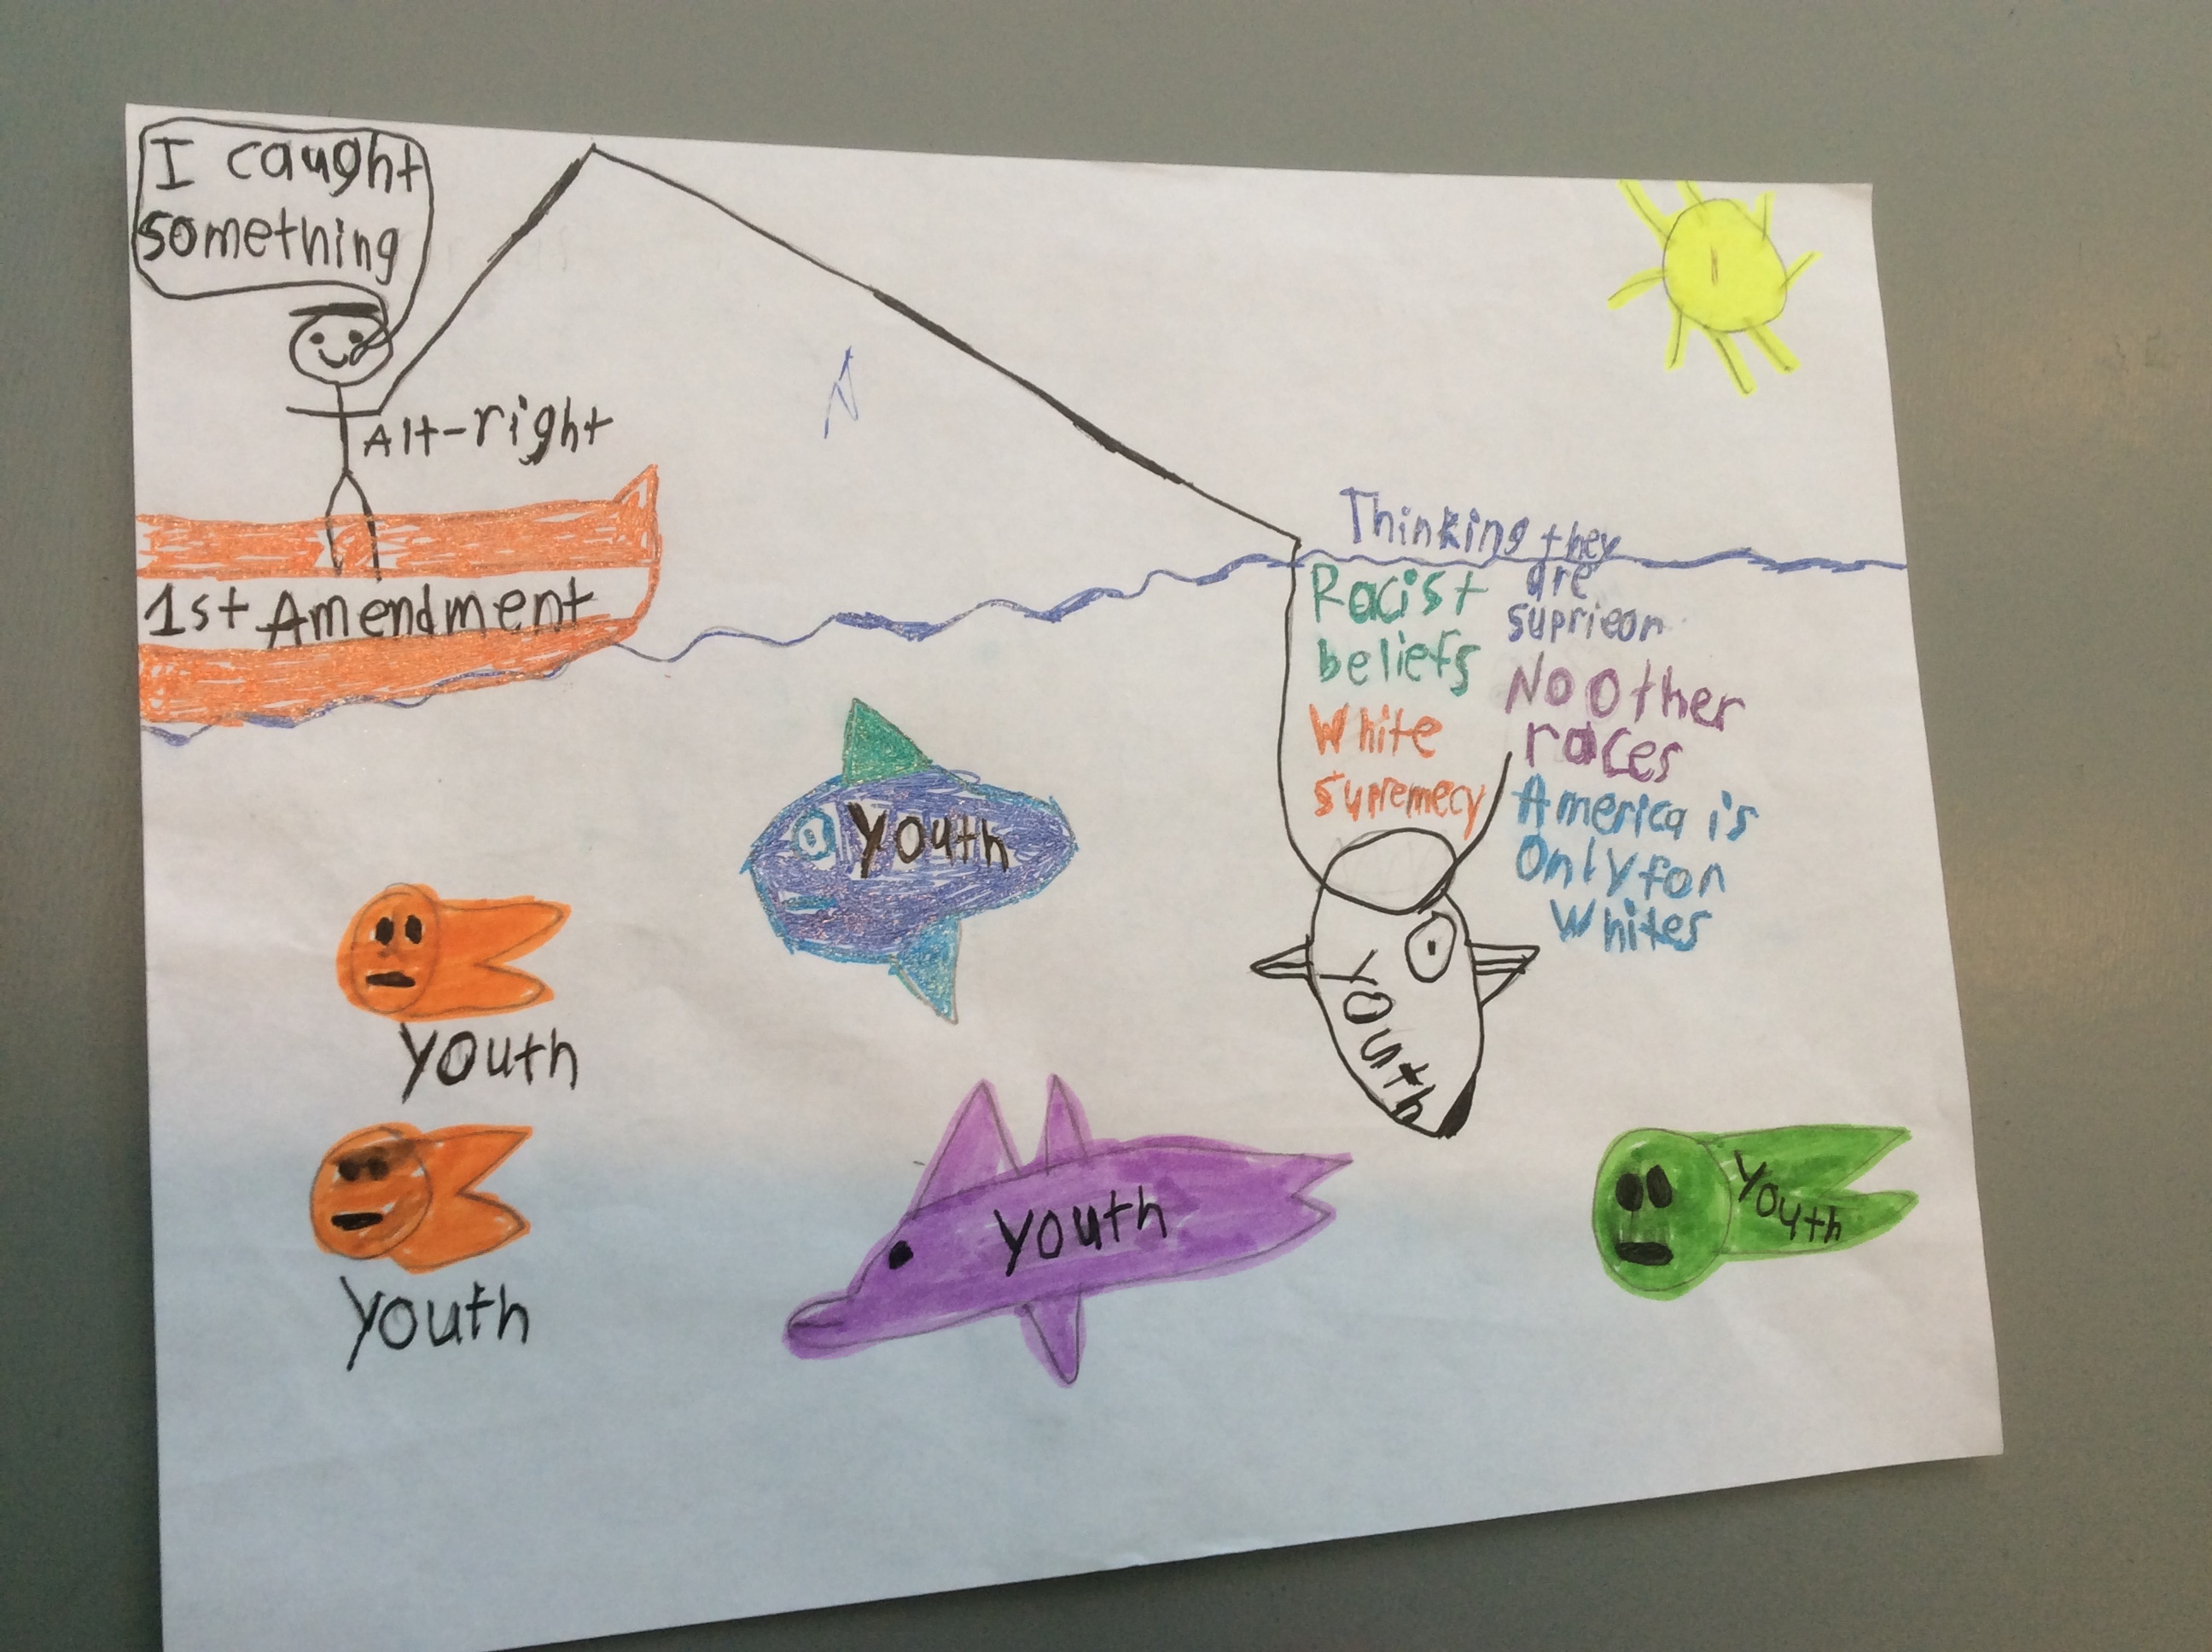 I caught
something
Alt-right
1st Amendment
Thinking they
are
suprieor
Racist
beliefs
White
Supremecy
No Other
races
America is
Only for
Whites
Youth
Youth
Youth
Youth
Youth
Youth